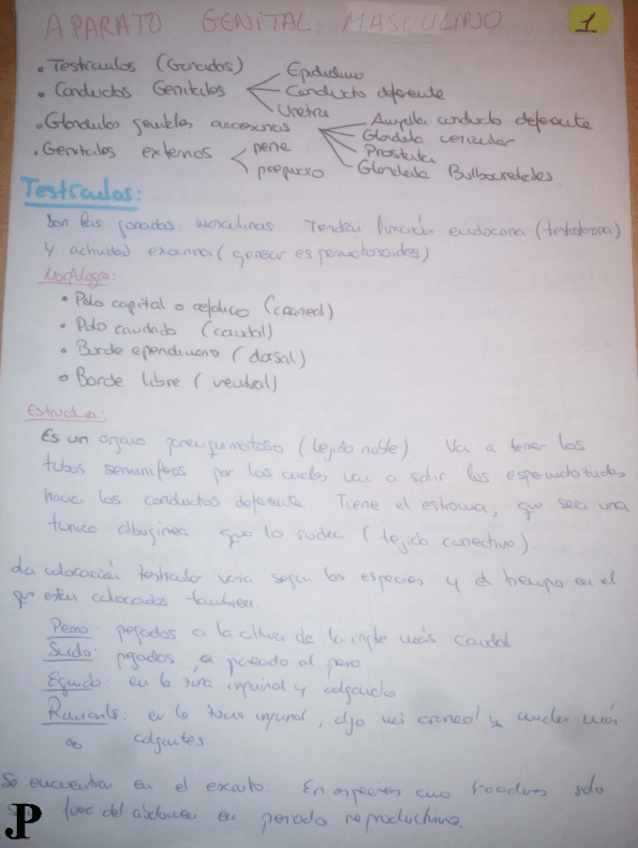 APARATO GENITAL MASCULINO 1
• Testículos (Gonadas)
• Conductos Genitales
Epididimo
Conducto deferente
Uretra
• Glandulas genitales accesorias
Ampolla conducto deferente
Glandula vesicular
Prostata
Glandula Bulbouretrales.
• Genitales externos
pene
prepucio
Testículos:
Son las gonadas masculinas Tendran función endocrina (testosterona)
y actividad exocrina (generar espermatozoides)
Morfologia:
• Polo capital o cefálico (craneal)
• Polo caudado (caudal)
• Borde ependimario (dorsal)
• Borde libre (ventral)
Estructura:
Es un organo parenquimatoso (tejido noble). Va a tener los
tubos seminiferos por los cuales van a salir los espermatozoides
hacia los conductos deferente. Tiene el estroma, que sera una
tunica albuginea que lo rodea (tejido conectivo).
La colocación testicular varia segun las especies y el tiempo en el
que esten colocados tambien.
Perro: pegados a la altura de la ingle más caudal
Suido: pegados parecido al perro
Equido: en la zona inguinal y colgando
Rumiante: en la zona inguinal, algo más craneal y mucho más
colgantes
Se encuentra en el escroto. En especies como roedores solo
fuera del abdomen en periodo reproductivo.
JP